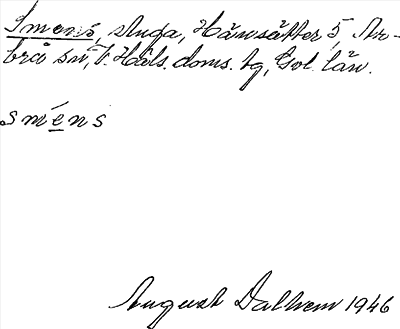 Smens, stuga, Hånsätter 5, Ar-
brå sn, V. Häls. doms. hg, Gvl. län.
smens
August Dalhem 1946